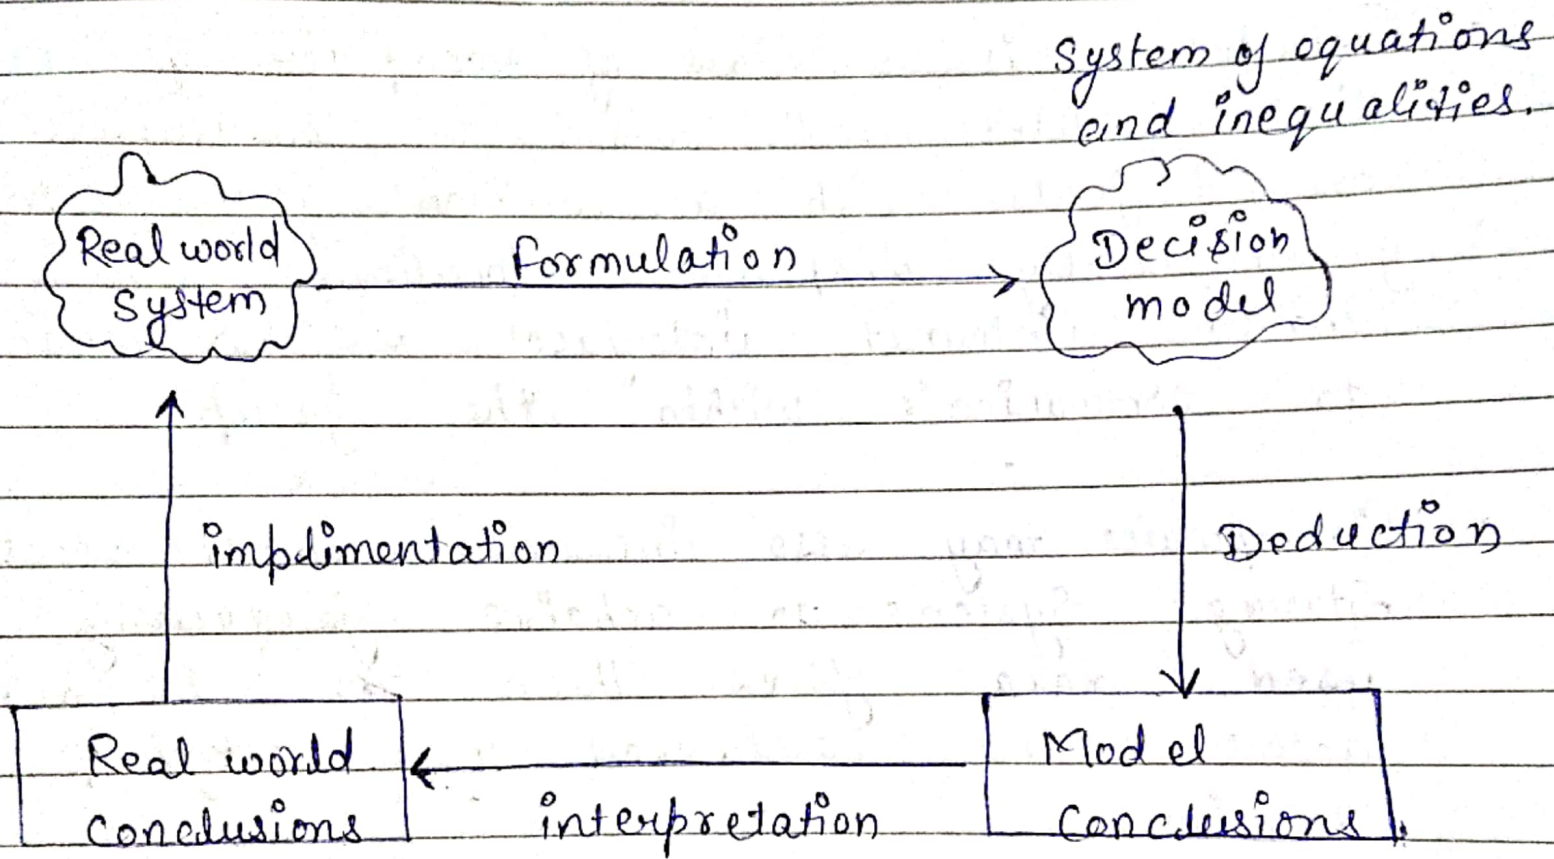 System of equations
and inequalities.
Real world
System
formulation
Decision
model
implimentation
Deduction
Real world
conclusions
interpretation
Model
Conclusions